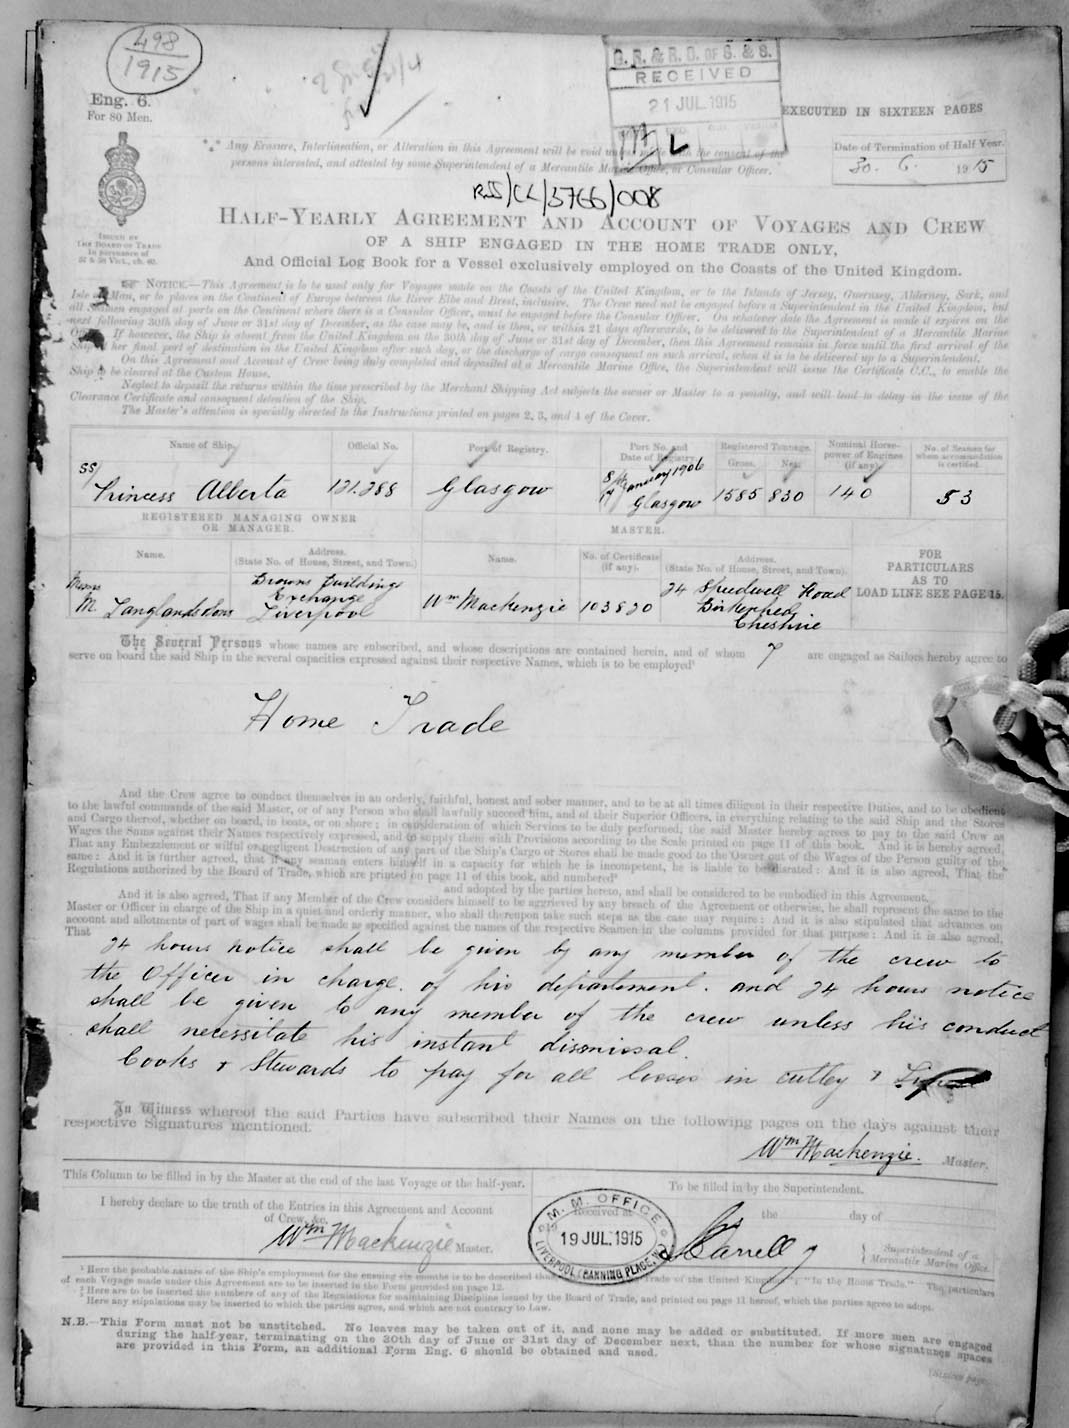 498
1915
Eng. 6.
For 80 Men.
G. R. & R. O. OF S. & S.
RECEIVED
21 JUL. 1915
EXECUTED IN SIXTEEN PAGES
Any Erasure, Interlineation, or Alteration in this Agreement will be void unless with the consent of the
persons interested, and attested by some Superintendent of a Mercantile Marine Office, or Consular Officer.
Date of Termination of Half Year.
30. 6. 1915
RSS/CL/3766/008
HALF-YEARLY AGREEMENT AND ACCOUNT OF VOYAGES AND CREW
OF A SHIP ENGAGED IN THE HOME TRADE ONLY,
And Official Log Book for a Vessel exclusively employed on the Coasts of the United Kingdom.
ISSUED BY
THE BOARD OF TRADE
In pursuance of
57 & 58 Vict., ch. 60.
NOTICE.—This Agreement is to be used only for Voyages made on the Coasts of the United Kingdom, or to the Islands of Jersey, Guernsey, Alderney, Sark, and
Isle of Man, or to places on the Continent of Europe between the River Elbe and Brest, inclusive. The Crew need not be engaged before a Superintendent in the United Kingdom, but
all Seamen engaged at ports on the Continent where there is a Consular Officer, must be engaged before the Consular Officer. On whatever date the Agreement is made it expires on the
next following 30th day of June or 31st day of December, as the case may be, and is then, or within 21 days afterwards, to be delivered to the Superintendent of a Mercantile Marine
Office. If however, the Ship is absent from the United Kingdom on the 30th day of June or 31st day of December, then this Agreement remains in force until the first arrival of the
Ship at her final port of destination in the United Kingdom after such day, or the discharge of cargo consequent on such arrival, when it is to be delivered up to a Superintendent.
On this Agreement and Account of Crew being duly completed and deposited at a Mercantile Marine Office, the Superintendent will issue the Certificate C.C., to enable the
Ship to be cleared at the Custom House.
Neglect to deposit the returns within the time prescribed by the Merchant Shipping Act subjects the owner or Master to a penalty, and will lead to delay in the issue of the
Clearance Certificate and consequent detention of the Ship.
The Master's attention is specially directed to the Instructions printed on pages 2, 3, and 4 of the Cover.
Name of Ship. Official No. Port of Registry. Port No. and Date of Registry. Registered Tonnage. Gross. Net. Nominal Horse-power of Engines (if any). No. of Seamen for whom accommodation is certified.
SS Princess Alberta 121.288 Glasgow 8 January 1906 Glasgow 1585 830 140 53
REGISTERED MANAGING OWNER
OR MANAGER.
MASTER.
Name. Address. (State No. of House, Street, and Town.) Name. No. of Certificate (if any). Address. (State No. of House, Street, and Town).
FOR
PARTICULARS
AS TO
LOAD LINE SEE PAGE 15.
Messrs M. Langlands & Sons Browns Buildings Exchange Liverpool Wm Mackenzie 103820 24 Speedwell Road Birkenhead Cheshire
The Several Persons whose names are subscribed, and whose descriptions are contained herein, and of whom 7 are engaged as Sailors hereby agree to
serve on board the said Ship in the several capacities expressed against their respective Names, which is to be employed¹
Home Trade
And the Crew agree to conduct themselves in an orderly, faithful, honest and sober manner, and to be at all times diligent in their respective Duties, and to be obedient
to the lawful commands of the said Master, or of any Person who shall lawfully succeed him, and of their Superior Officers, in everything relating to the said Ship and the Stores
and Cargo thereof, whether on board, in boats, or on shore; in consideration of which Services to be duly performed, the said Master hereby agrees to pay to the said Crew as
Wages the Sums against their Names respectively expressed, and to supply them with Provisions according to the Scale printed on page 11 of this book. And it is hereby agreed,
That any Embezzlement or wilful or negligent Destruction of any part of the Ship's Cargo or Stores shall be made good to the Owner out of the Wages of the Person guilty of the
same: And it is further agreed, that if any seaman enters himself in a capacity for which he is incompetent, he is liable to be disrated: And it is also agreed, That the
Regulations authorized by the Board of Trade, which are printed on page 11 of this book, and numbered²
and adopted by the parties hereto, and shall be considered to be embodied in this Agreement.
And it is also agreed, That if any Member of the Crew considers himself to be aggrieved by any breach of the Agreement or otherwise, he shall represent the same to the
Master or Officer in charge of the Ship in a quiet and orderly manner, who shall thereupon take such steps as the case may require: And it is also stipulated that advances on
account and allotments of part of wages shall be made as specified against the names of the respective Seamen in the columns provided for that purpose: And it is also agreed,
That
24 hours notice shall be given by any member of the crew to
the Officer in charge of his department. and 24 hours notice
shall be given to any member of the crew unless his conduct
shall necessitate his instant dismissal.
Cooks & Stewards to pay for all losses in cutley &
In Witness whereof the said Parties have subscribed their Names on the following pages on the days against their
respective Signatures mentioned.
Wm Mackenzie. Master.
This Column to be filled in by the Master at the end of the last Voyage or the half-year.
To be filled in by the Superintendent.
I hereby declare to the truth of the Entries in this Agreement and Account
of Crew, &c.
Wm Mackenzie Master.
M. M. OFFICE
Received at
19 JUL. 1915
LIVERPOOL (CANNING PLACE)
the day of
Superintendent of a
Mercantile Marine Office.
¹ Here the probable nature of the Ship's employment for the ensuing six months is to be described Trade of the United Kingdom" "In the Home Trade." The particulars
of each Voyage made under this Agreement are to be inserted in the Form provided on page 12.
² Here are to be inserted the numbers of any of the Regulations for maintaining Discipline issued by the Board of Trade, and printed on page 11 hereof, which the parties agree to adopt.
Here any stipulations may be inserted to which the parties agree, and which are not contrary to Law.
N.B.—This Form must not be unstitched. No leaves may be taken out of it, and none may be added or substituted. If more men are engaged
during the half-year, terminating on the 30th day of June or 31st day of December next, than the number for whose signatures spaces
are provided in this Form, an additional Form Eng. 6 should be obtained and used.